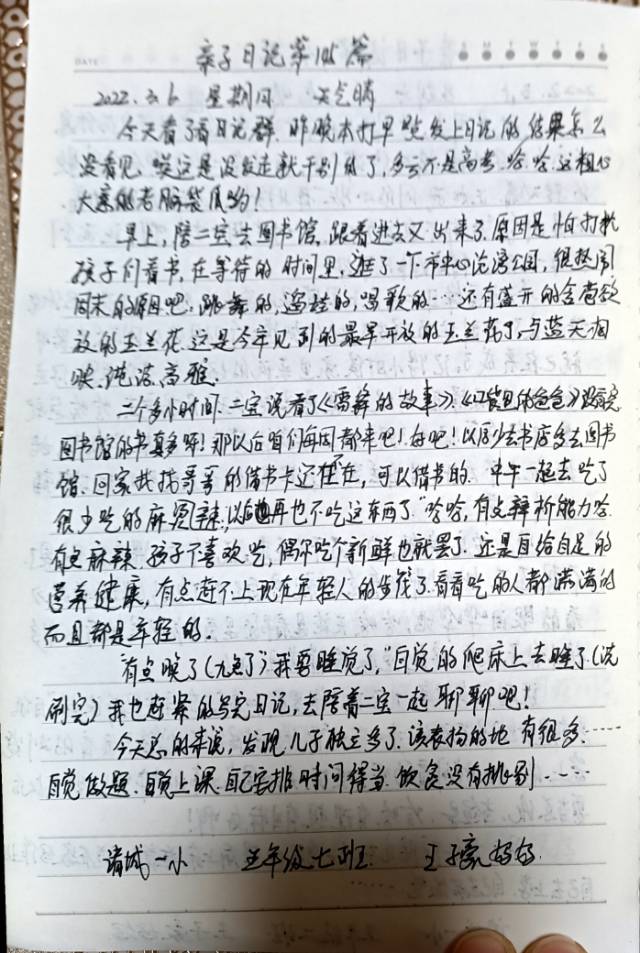 DATE
亲子日记第105篇
2022.3.6 星期日 天气晴
今天看了看日记群.昨晚本打早晚发上日记的结果怎么
没看见.唉这是没发走就干别的了,多亏不是高考.哈哈这粗心
大意的老脑袋瓜哟!
早上,陪二宝去图书馆.跟着进去又出来了.原因是怕打扰
孩子们看书,在等待的时间里,逛了一下市中心沧湾公园,很热闹
周末的原因吧.跳舞的,遛娃的,唱歌的…还有盛开的含苞欲
放的玉兰花.这是今年见到的最早开放的玉兰花了,与蓝天相
映,洁高雅.
二个多小时间.二宝说看了《雷锋的故事》.《口袋里的爸爸》没看完
图书馆的书真多呀!那以后咱们每周都来吧!好吧!以后少去书店多去图书
馆.回家我找哥哥的借书卡还在,可以借书的.中午一起去吃了
很少吃的麻辣,以后再也不吃这东西了."哈哈,有点辨析能力哈.
有点麻辣.孩子不喜欢吃,偶尔吃个新鲜也就罢了.还是自给自足的
营养健康,有点赶不上现在年轻人的步伐了.看看吃的人都满满的
而且都是年轻的.
有点晚了(九点了)我要睡觉了,"自觉的爬床上去睡了(洗
刷完)我也赶紧的写完日记,去陪着二宝一起聊聊吧!
今天总的来说,发现儿子独立多了.该表扬的地有很多……
自觉做题.自觉上课.自己安排时间得当.饮食没有挑剔….
诸城一小 五年级七班. 王子豪妈妈.